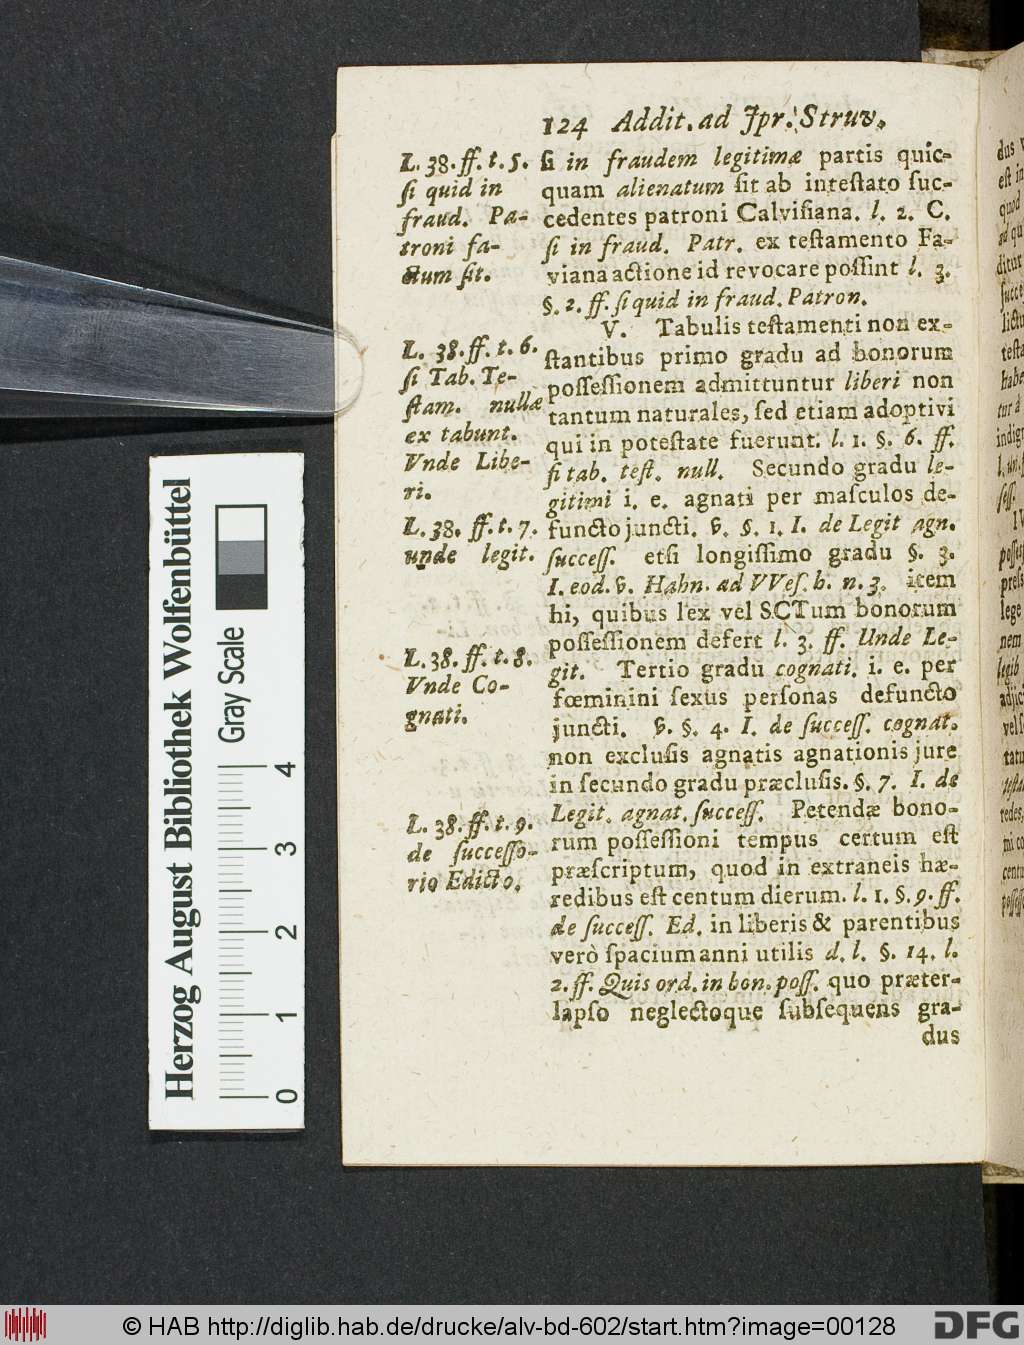 124 Addit. ad Jpr. Struv.
L. 38. ff. t. 5.
ſi quid in
fraud. Pa-
troni fa-
ctum ſit.
L. 38. ff. t. 6.
ſi Tab. Te-
ſtam. nullæ
ex tabunt.
Vnde Libe-
ri.
L. 38. ff. t. 7.
unde legit.
L. 38. ff. t. 8.
Vnde Co-
gnati.
L. 38. ff. t. 9.
de ſucceſſo-
rio Edicto.
ſi in fraudem legitimæ partis quic-
quam alienatum ſit ab inteſtato ſuc-
cedentes patroni Calviſiana. l. 2. C.
ſi in fraud. Patr. ex teſtamento Fa-
viana actione id revocare poſſint l. 3.
§. 2. ff. ſi quid in fraud. Patron.
V. Tabulis teſtamenti non ex-
ſtantibus primo gradu ad bonorum
poſſeſſionem admittuntur liberi non
tantum naturales, ſed etiam adoptivi
qui in poteſtate fuerunt. l. 1. §. 6. ff.
ſi tab. teſt. null. Secundo gradu le-
gitimi i. e. agnati per maſculos de-
functo juncti. v. §. 1. I. de Legit agn.
ſucceſſ. etſi longiſſimo gradu §. 3.
I. eod. v. Hahn. ad VVeſ. h. n. 3. item
hi, quibus lex vel SCTum bonorum
poſſeſſionem defert l. 3. ff. Unde Le-
git. Tertio gradu cognati. i. e. per
fœminini ſexus perſonas defuncto
juncti. v. §. 4. I. de ſucceſſ. cognat.
non excluſis agnatis agnationis jure
in ſecundo gradu præcluſis. §. 7. I. de
Legit. agnat. ſucceſſ. Petendæ bono-
rum poſſeſſioni tempus certum eſt
præſcriptum, quod in extraneis hæ-
redibus eſt centum dierum. l. 1. §. 9. ff.
de ſucceſſ. Ed. in liberis & parentibus
verò ſpacium anni utilis d. l. §. 14. l.
2. ff. Quis ord. in bon. poſſ. quo præter-
lapſo neglectoque ſubſequens gra-
dus
Herzog August Bibliothek Wolfenbüttel
Gray Scale
0 1 2 3 4
© HAB http://diglib.hab.de/drucke/alv-bd-602/start.htm?image=00128
DFG